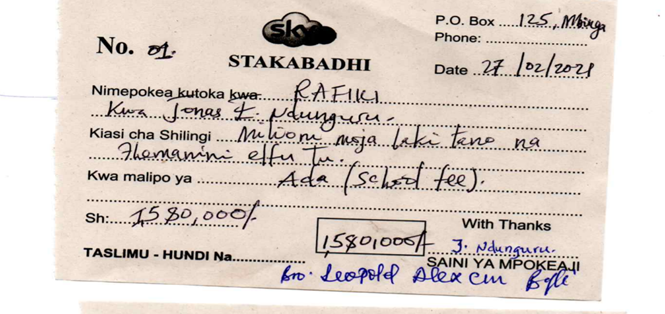 sky
P.O. Box 125, Mbinga
Phone:
No. 01.
STAKABADHI
Date 27/02/2021
Nimepokea kutoka kwa RAFIKI
Kwa Jonas F. Ndunguru.
Kiasi cha Shilingi Milioni moja laki tano na
Themanini elfu tu.
Kwa malipo ya Ada (School fee).
Sh: 1,580,000/-
With Thanks
1,580,000/-
J. Ndunguru.
TASLIMU - HUNDI Na.
SAINI YA MPOKEAJI
Bro. Leopold Alex